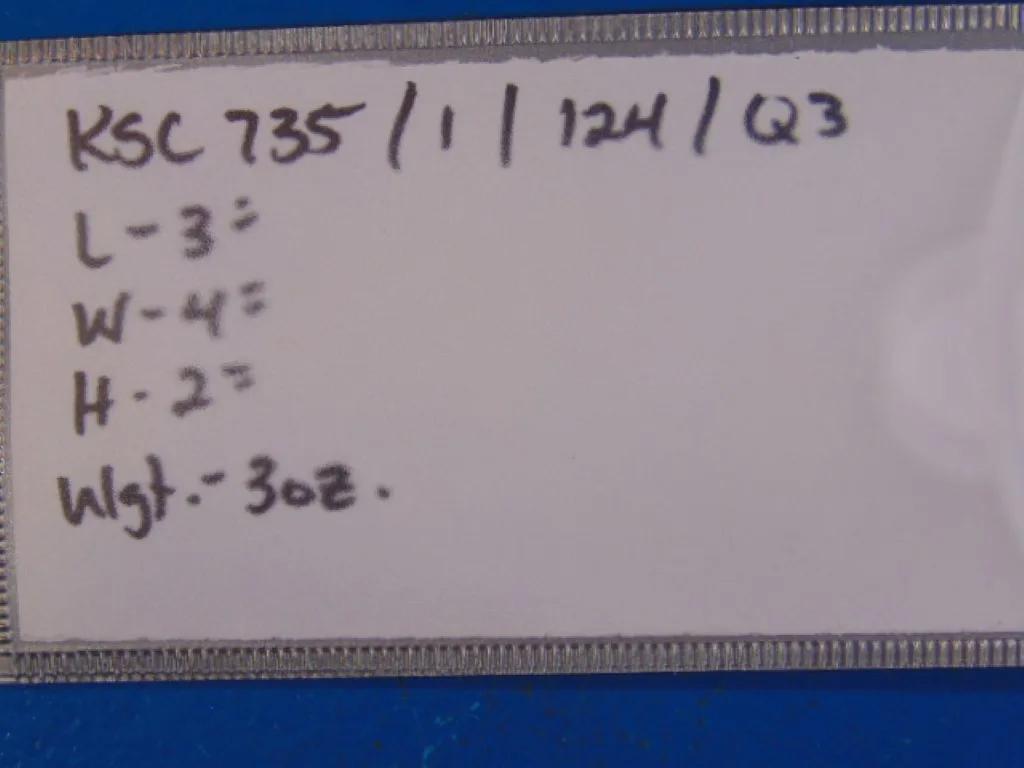 KSC 735 / 1 / 124 / Q3
L - 3"
W - 4"
H - 2"
Wgt. - 3oz.